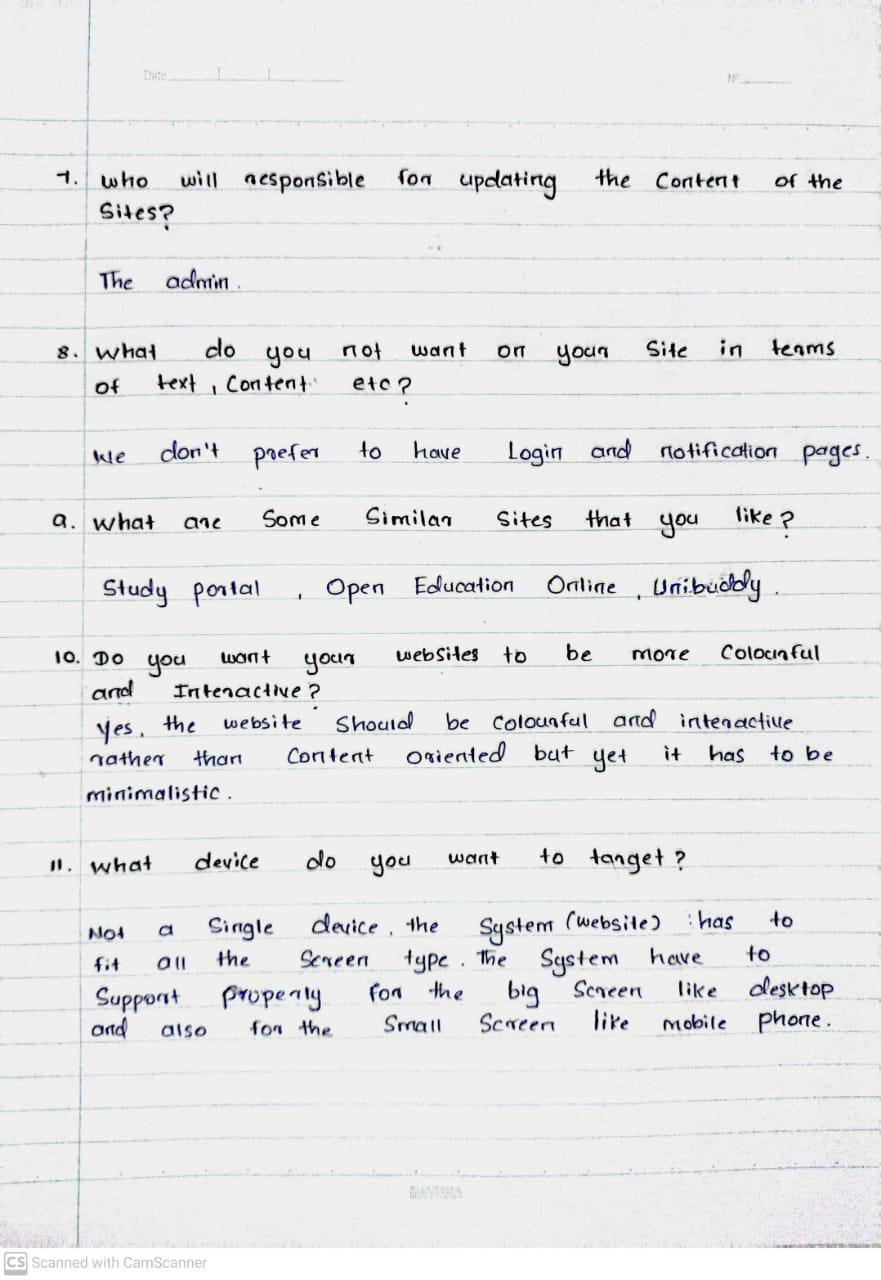 Date
Nº
7. who will responsible for updating the Content of the
Sites?
The admin.
8. What do you not want on your Site in terms
of text, Content etc?
We don't prefer to have Login and notification pages.
9. What are Some Similar Sites that you like?
Study portal, Open Education Online, Unibuddy.
10. Do you want your websites to be more Colourful
and Interactive?
Yes, the website Should be Colourful and interactive
rather than Content oriented but yet it has to be
minimalistic.
11. What device do you want to target?
Not a Single device, the System (website) has to
fit all the Screen type. The System have to
Support properly for the big Screen like desktop
and also for the Small Screen like mobile phone.
CS Scanned with CamScanner